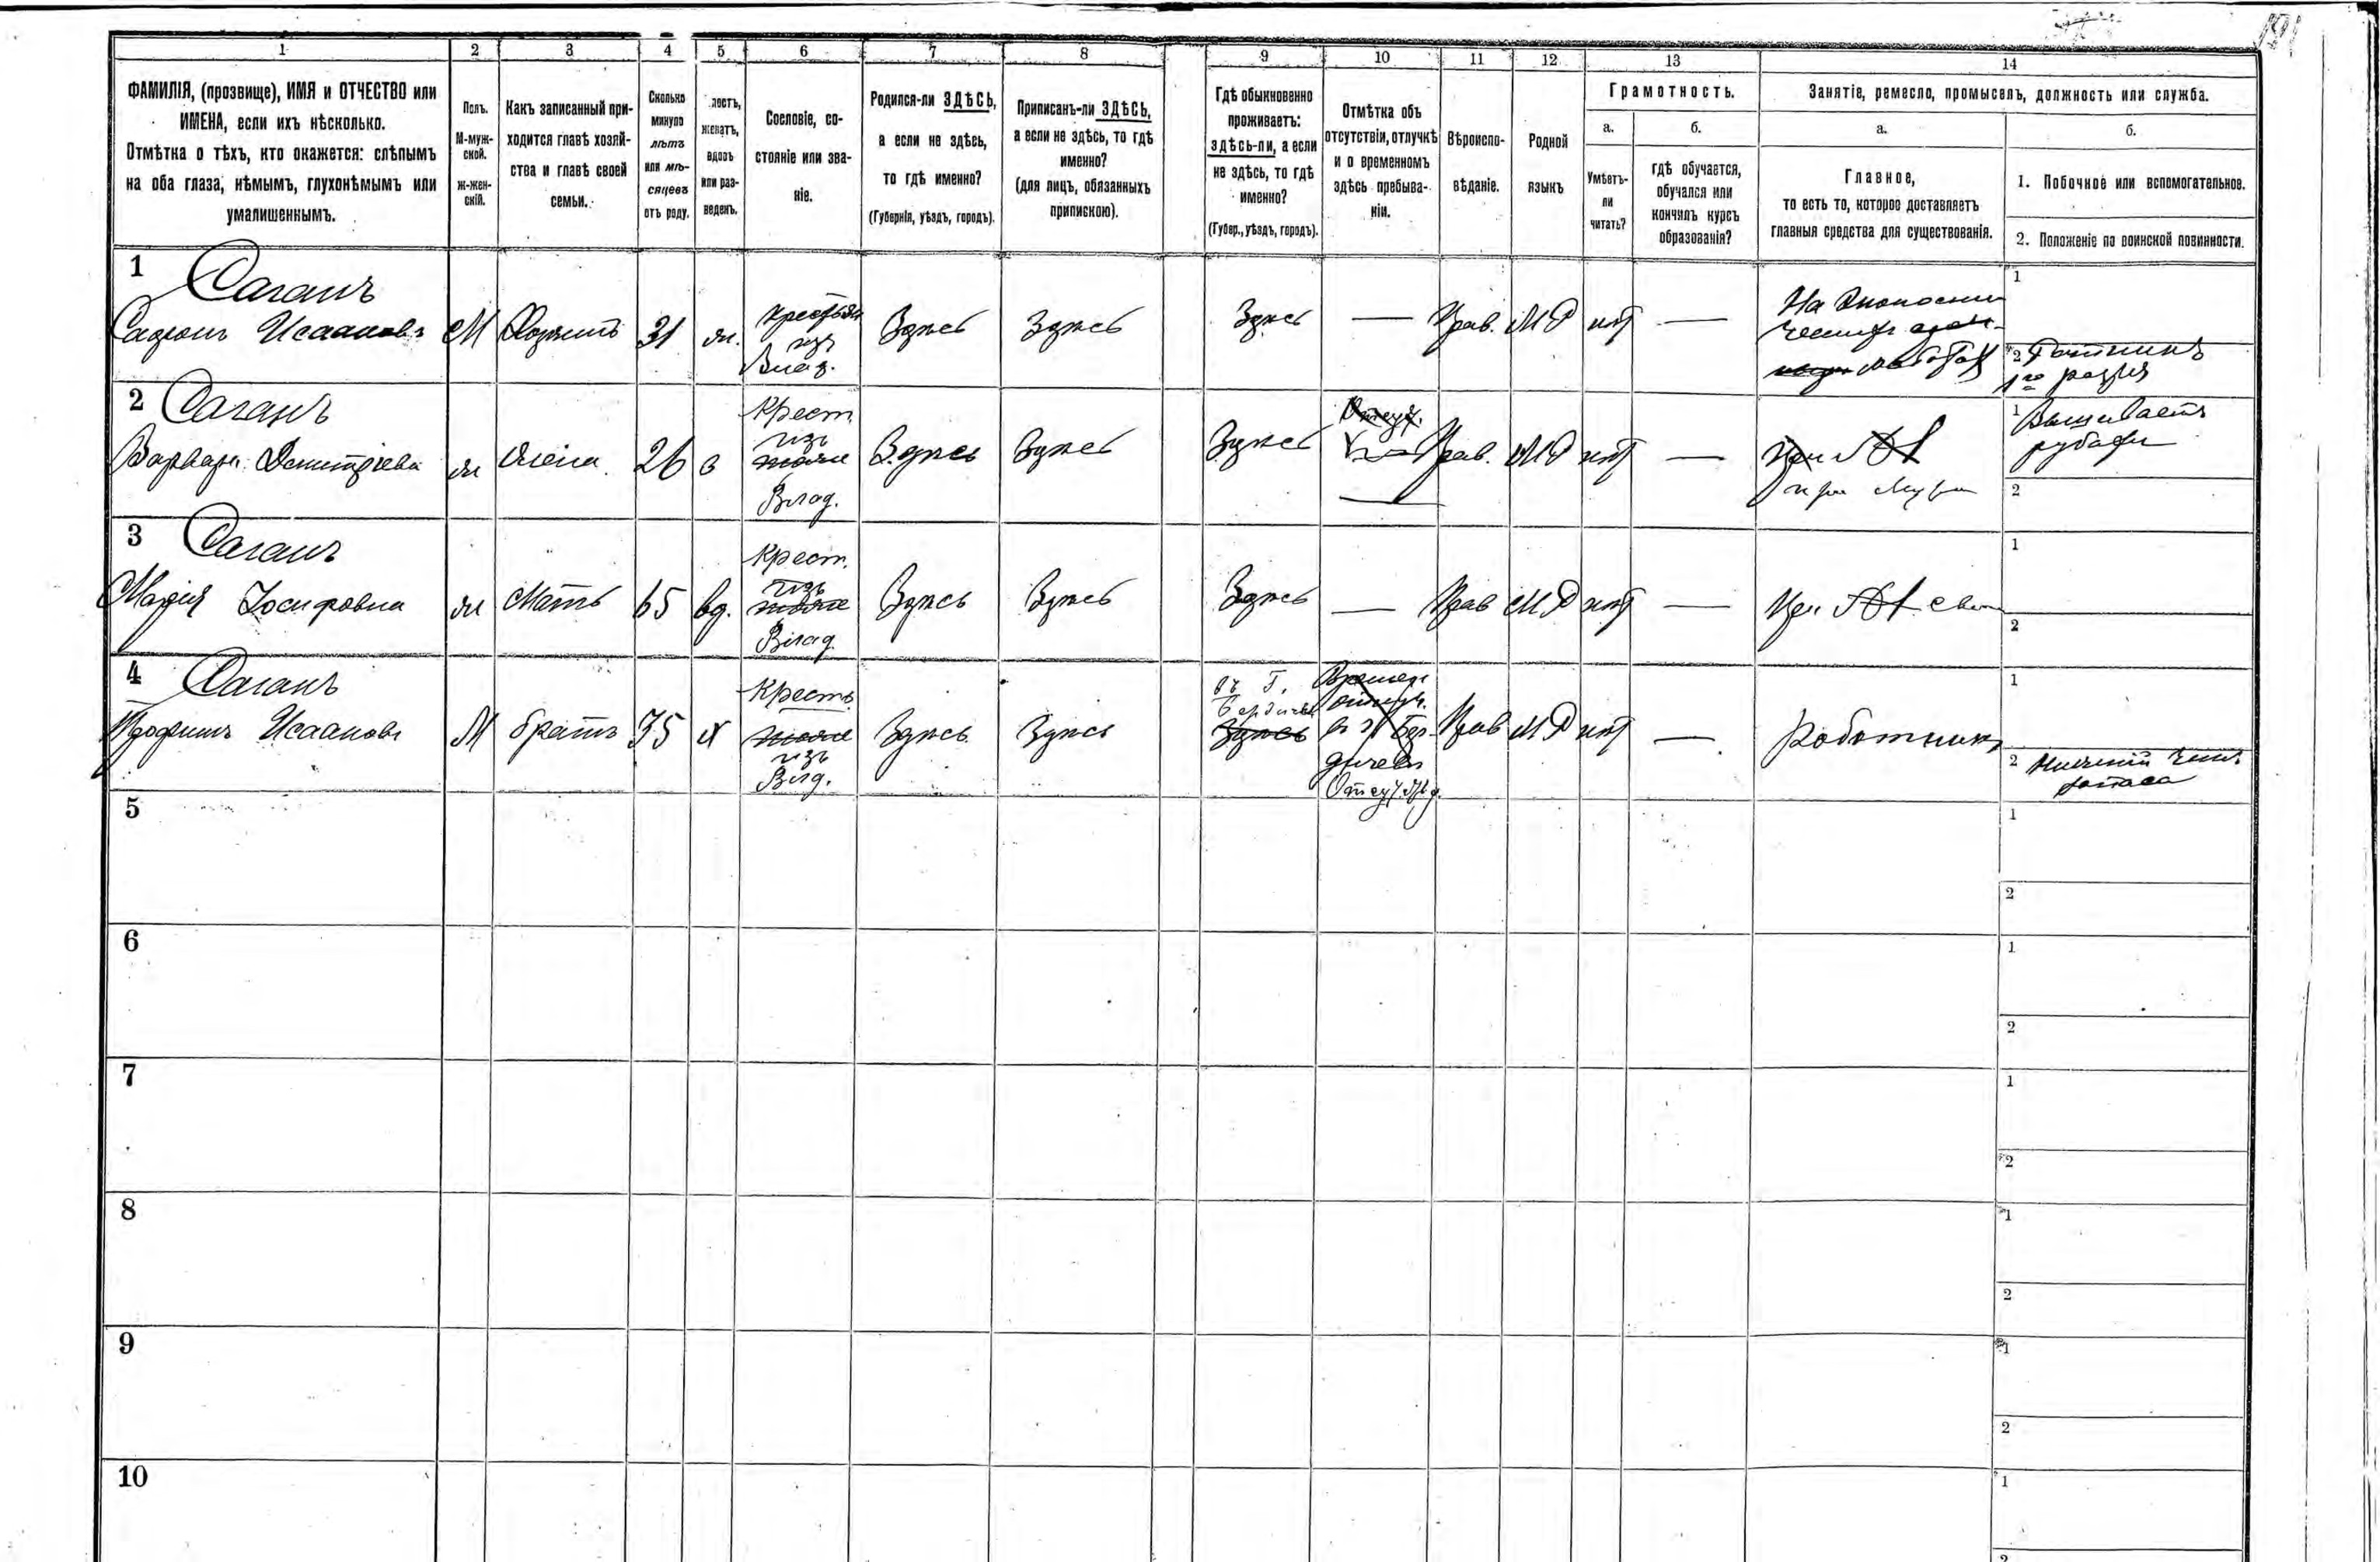 1
2
3
4
5
6
7
8
9
10
11
12
13
14
ФАМИЛІЯ, (прозвище), ИМЯ и ОТЧЕСТВО или
ИМЕНА, если ихъ нѣсколько.
Отмѣтка о тѣхъ, кто окажется: слѣпымъ
на оба глаза, нѣмымъ, глухонѣмымъ или
умалишеннымъ.
Полъ.
М-муж-
ской.
ж-жен-
скій.
Какъ записанный при-
ходится главѣ хозяй-
ства и главѣ своей
семьи.
Сколько
минуло
лѣтъ
или мѣ-
сяцевъ
отъ роду.
лостъ,
женатъ,
вдовъ
или раз-
веденъ.
Сословіе, со-
стояніе или зва-
ніе.
Родился-ли ЗДѢСЬ,
а если не здѣсь,
то гдѣ именно?
(Губернія, уѣздъ, городъ).
Приписанъ-ли ЗДѢСЬ,
а если не здѣсь, то гдѣ
именно?
(для лицъ, обязанныхъ
припискою).
Гдѣ обыкновенно
проживаетъ:
здѣсь-ли, а если
не здѣсь, то гдѣ
именно?
(Губер., уѣздъ, городъ).
Отмѣтка объ
отсутствіи, отлучкѣ
и о временномъ
здѣсь пребыва-
ніи.
Вѣроиспо-
вѣданіе.
Родной
языкъ
Грамотность.
а.
Умѣетъ-
ли
читать?
б.
гдѣ обучается,
обучался или
кончилъ курсъ
образованія?
Занятіе, ремесло, промыселъ, должность или служба.
а.
Главное,
то есть то, которое доставляетъ
главныя средства для существованія.
б.
1. Побочное или вспомогательное.
2. Положеніе по воинской повинности.
1 Саганъ
Исааковъ М Хозяинъ 31 ж. крестьян
изъ
Влад.
Здѣсь Здѣсь Здѣсь — Прав. МР нѣт —
1
2 Ратникъ
1го разряд
2 Саганъ
Варвара Дмитріева ж Жена 26 з Крест.
изъ
Влад.
Здѣсь Здѣсь Здѣсь — Прав. МР нѣт —
при мужѣ
1 Вышиваетъ
рубахи
2
3 Саганъ
Марія Іосифовна ж Мать 65 вд. Крест.
изъ
Влад.
Здѣсь Здѣсь Здѣсь — Прав МР нѣт —
При сын
1
2
4 Саганъ
Трофимъ Исааковъ М братъ 35 х Крестъ
изъ
Влд.
Здѣсь Здѣсь
въ Г.
Бердичев
Здѣсь
Времен
отлуч.
въ г. Бер-
дичевъ
Прав МР нѣт —
Работникъ
1
2 Нижній чинъ
запаса
5
1
2
6
1
2
7
1
2
8
1
2
9
1
2
10
1
2